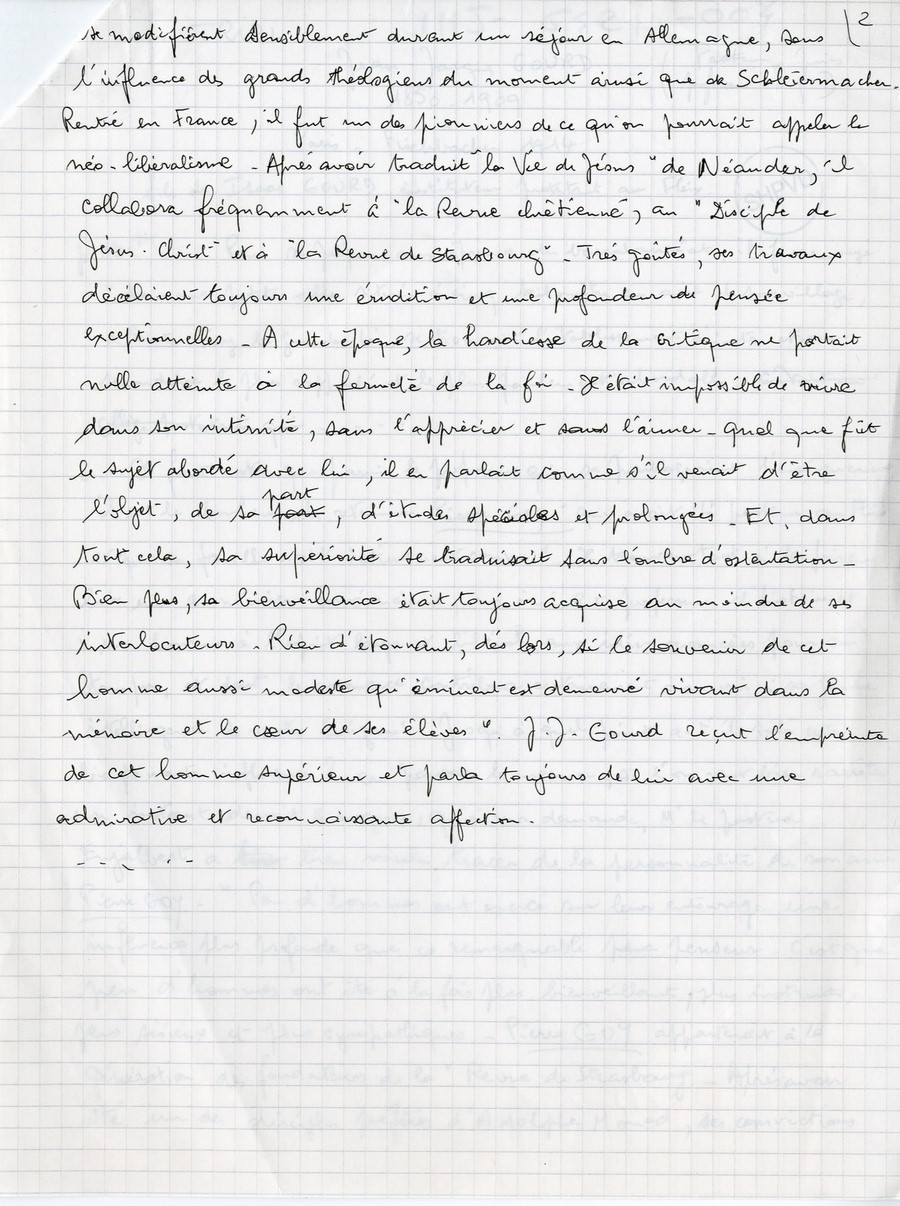 2
se modifièrent sensiblement durant un séjour en Allemagne, sous
l'influence des grands théologiens du moment ainsi que de Schleiermacher.
Rentré en France, il fut un des pionniers de ce qu'on pourrait appeler le
néo-libéralisme - Après avoir traduit "la Vie de Jésus" de Néander, il
collabora fréquemment à "la Revue chrétienne", au "Disciple de
Jésus-Christ" et à "la Revue de Strasbourg" - Très goûtés, ses travaux
décélaient toujours une érudition et une profondeur de pensée
exceptionnelles - A cette époque, la hardiesse de la critique ne portait
nulle atteinte à la fermeté de la foi - Il était impossible de vivre
dans son intimité, sans l'apprécier et sans l'aimer - Quel que fût
le sujet abordé avec lui, il en parlait comme s'il venait d'être
l'objet, de sa part, d'études spéciales et prolongées - Et, dans
tout cela, sa supériorité se traduisait sans l'ombre d'ostentation -
Bien plus, sa bienveillance était toujours acquise au moindre de ses
interlocuteurs - Rien d'étonnant, dès lors, si le souvenir de cet
homme aussi modeste qu'éminent est demeuré vivant dans la
mémoire et le cœur de ses élèves". J.J. Gourd reçut l'empreinte
de cet homme supérieur et parla toujours de lui avec une
admirative et reconnaissante affection.